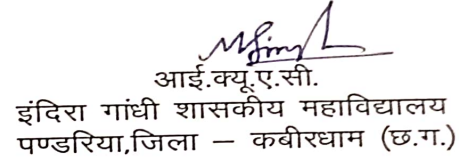 आई.क्यू.ए.सी.
इंदिरा गांधी शासकीय महाविद्यालय
पण्डरिया,जिला – कबीरधाम (छ.ग.)